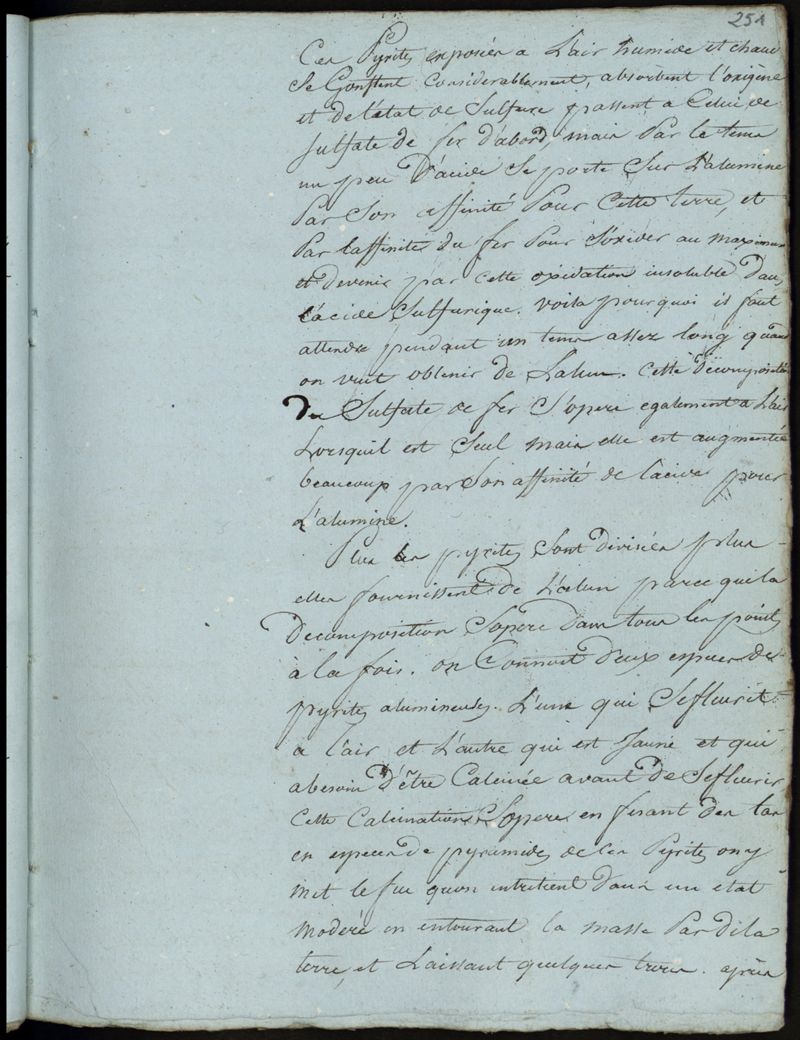 251
Ces Pyrites exposées a L'air humide et chaud
Se Gonflent Considerablement, absorbent l'oxigène
et de l'état de Sulfure passent a Celui de
sulfate de fer d'abord, mais Par le tems
un peu D'acide Se porte Sur L'alumine
Par Son affinité Pour Cette terre, et
Par l'affinité du fer Pour S'oxider au maximum
et devenir par cette oxidation insoluble Dans
L'acide Sulfurique. Voila pourquoi il faut
attendre pendant un tems assez long quand
on veut obtenir de Lalun. Cette Décomposition
Du Sulfate de fer S'opere egalement a L'air
Lorsquil est Seul mais elle est augmentée
beaucoup par Son affinité de lacide pour
L'alumine.
Plus les pyrites Sont divisées plus
elles fournissent de L'alun parce que la
Décomposition S'opere dans tous les points
à la fois. on Connoit deux especes de
pyrites alumineuses. L'une qui Sefleurit
a l'air et L'autre qui est Jaune et qui
a besoin D'être Calcinée avant de Sefleurir
Cette Calcination S'opere en fesant des tas
en especes de pyramides de ces Pyrites on y
met le feu quon entretient Dans un etat
Modéré en entourant la masse Par de la
terre, et Laissant quelques trous. après